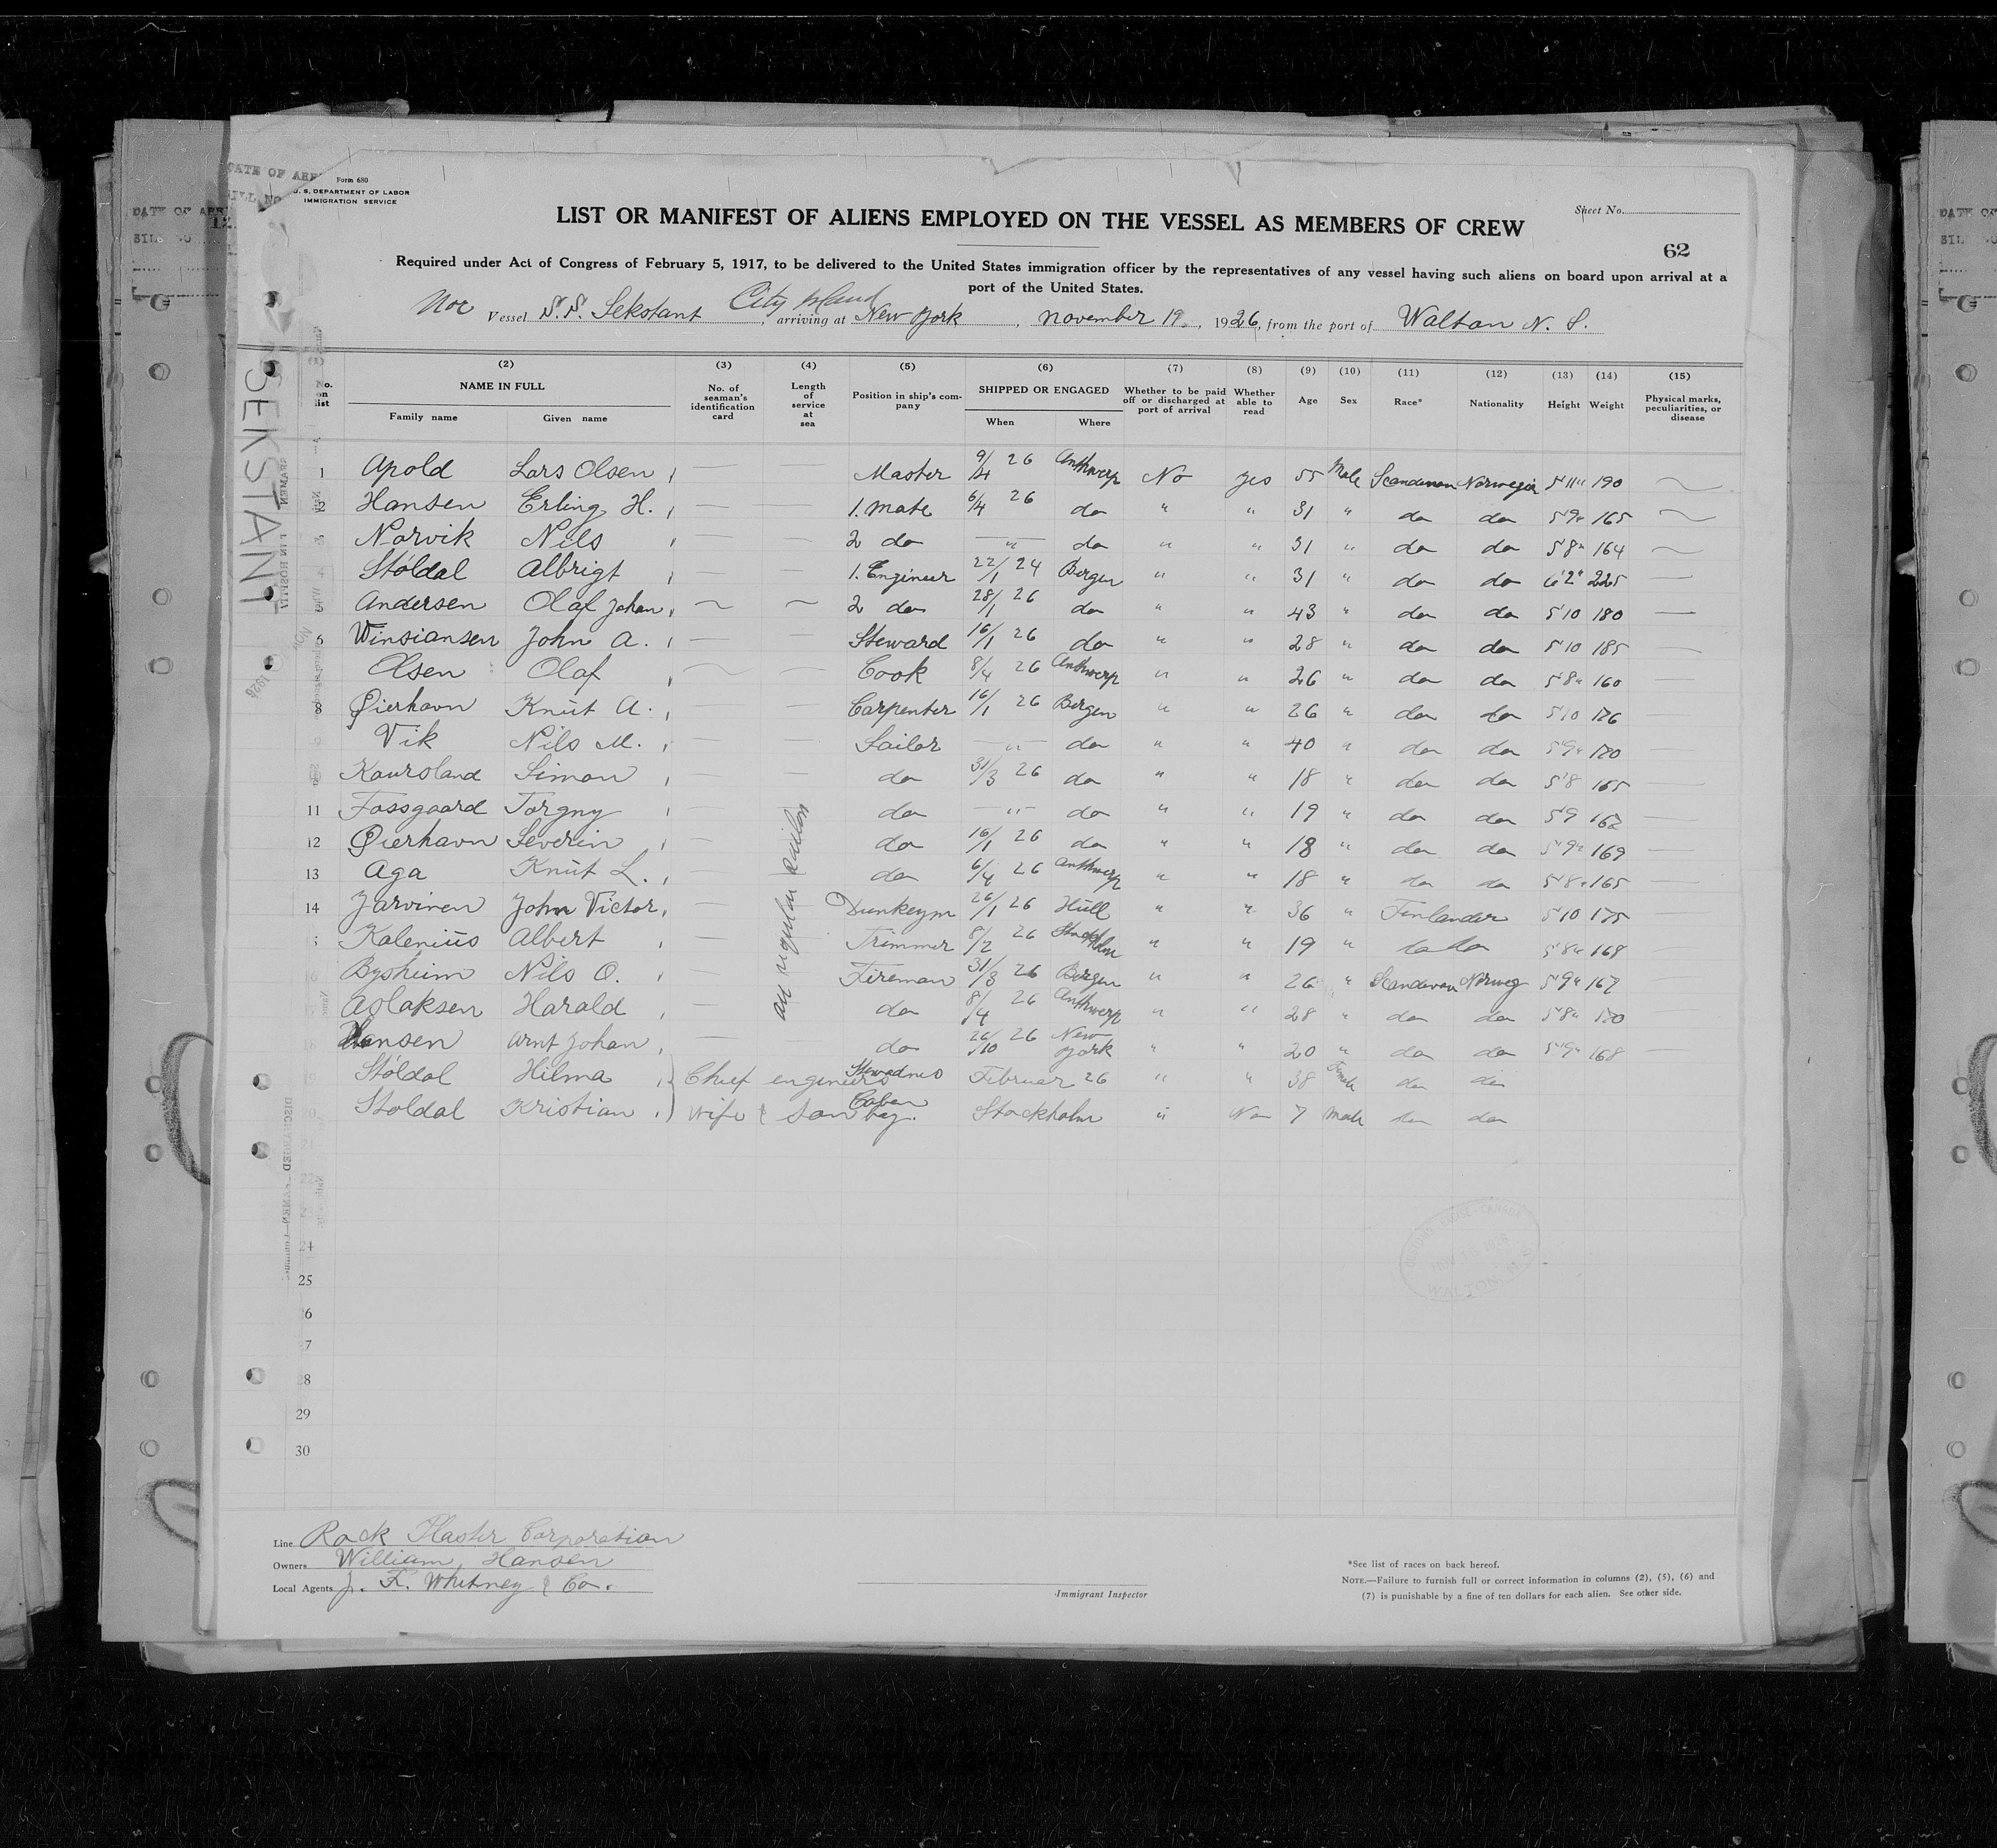 Form 680
U. S. DEPARTMENT OF LABOR
IMMIGRATION SERVICE
Sheet No.
LIST OR MANIFEST OF ALIENS EMPLOYED ON THE VESSEL AS MEMBERS OF CREW
62
Required under Act of Congress of February 5, 1917, to be delivered to the United States immigration officer by the representatives of any vessel having such aliens on board upon arrival at a
port of the United States.
City Island
Nor Vessel S.S. Sekstant, arriving at New York, November 19., 1926, from the port of Walton N. S.
SEKSTANT
(2) (3) (4) (5) (6) (7) (8) (9) (10) (11) (12) (13) (14) (15)
No. on list NAME IN FULL Family name Given name No. of seaman's identification card Length of service at sea Position in ship's company SHIPPED OR ENGAGED When Where Whether to be paid off or discharged at port of arrival Whether able to read Age Sex Race* Nationality Height Weight Physical marks, peculiarities, or disease
1 Apold Lars Olsen — — Master 9/4 26 Anthwerp No yes 55 Male Scandinavn Norwegia 5'11" 190
2 Hansen Erling H. — — 1. mate 6/4 26 do " " 31 " do do 5'9" 165
3 Norvik Nils — 2 do —"— do " " 31 " do do 5'8" 164
4 Stöldal Albrigt — — 1. Engineer 22/1 24 Bergen " " 31 " do do 6'2" 225 —
5 Andersen Olaf Johan — — 2 do 28/1 26 do " " 43 " do do 5'10 180 —
6 Winsiansen John A. — Steward 16/1 26 do " " 28 " do do 5'10 185 —
Olsen Olaf — — Cook 8/4 26 Anthwerp " " 26 " do do 5'8" 160 —
8 Øierhavn Knut A. — — Carpenter 16/1 26 Bergen " " 26 " do do 5'10 176 —
Vik Nils M. — — Sailor —"— do " " 40 " do do 5'9" 170 —
Kaursland Simon — — do 31/3 26 do " " 18 " do do 5'8 165 —
11 Fossgaard Torgny — do —"— do " " 19 " do do 5'9 162 —
12 Øierhavn Severin — do 16/1 26 do " " 18 " do do 5'9" 169 —
13 Aga Knut L. — do 6/4 26 Anthwerp " " 18 " do do 5'8" 165 —
14 Jarvinen John Victor — Dunkeym 26/1 26 Hull " " 36 " Finlander 5'10 175 —
Kalenius Albert — Trimmer 8/2 26 Stockholm " " 19 " do do 5'8" 168 —
16 Bysheim Nils O. — Fireman 31/3 26 Bergen " " 26 " Scandinavn Norweg 5'9" 167 —
17 Aslaksen Harald — do 8/4 26 Anthwerp " " 28 " do do 5'8" 170 —
18 Hansen Arnt Johan — do 26/10 26 New York " " 20 " do do 5'9" 168 —
19 Stöldal Hilma Chief engineers Stewadnes Februar 26 " " 38 Female do do
20 Stoldal Kristian wife & son Caben boy. Stockholm " No 7 Male do do
all regular sailors
24
25
26
27
28
29
30
WALTON
Line Rock Plaster Corporation
Owners William Hansen
Local Agents J. F. Whitney & Co.
Immigrant Inspector
*See list of races on back hereof.
NOTE.—Failure to furnish full or correct information in columns (2), (5), (6) and
(7) is punishable by a fine of ten dollars for each alien. See other side.